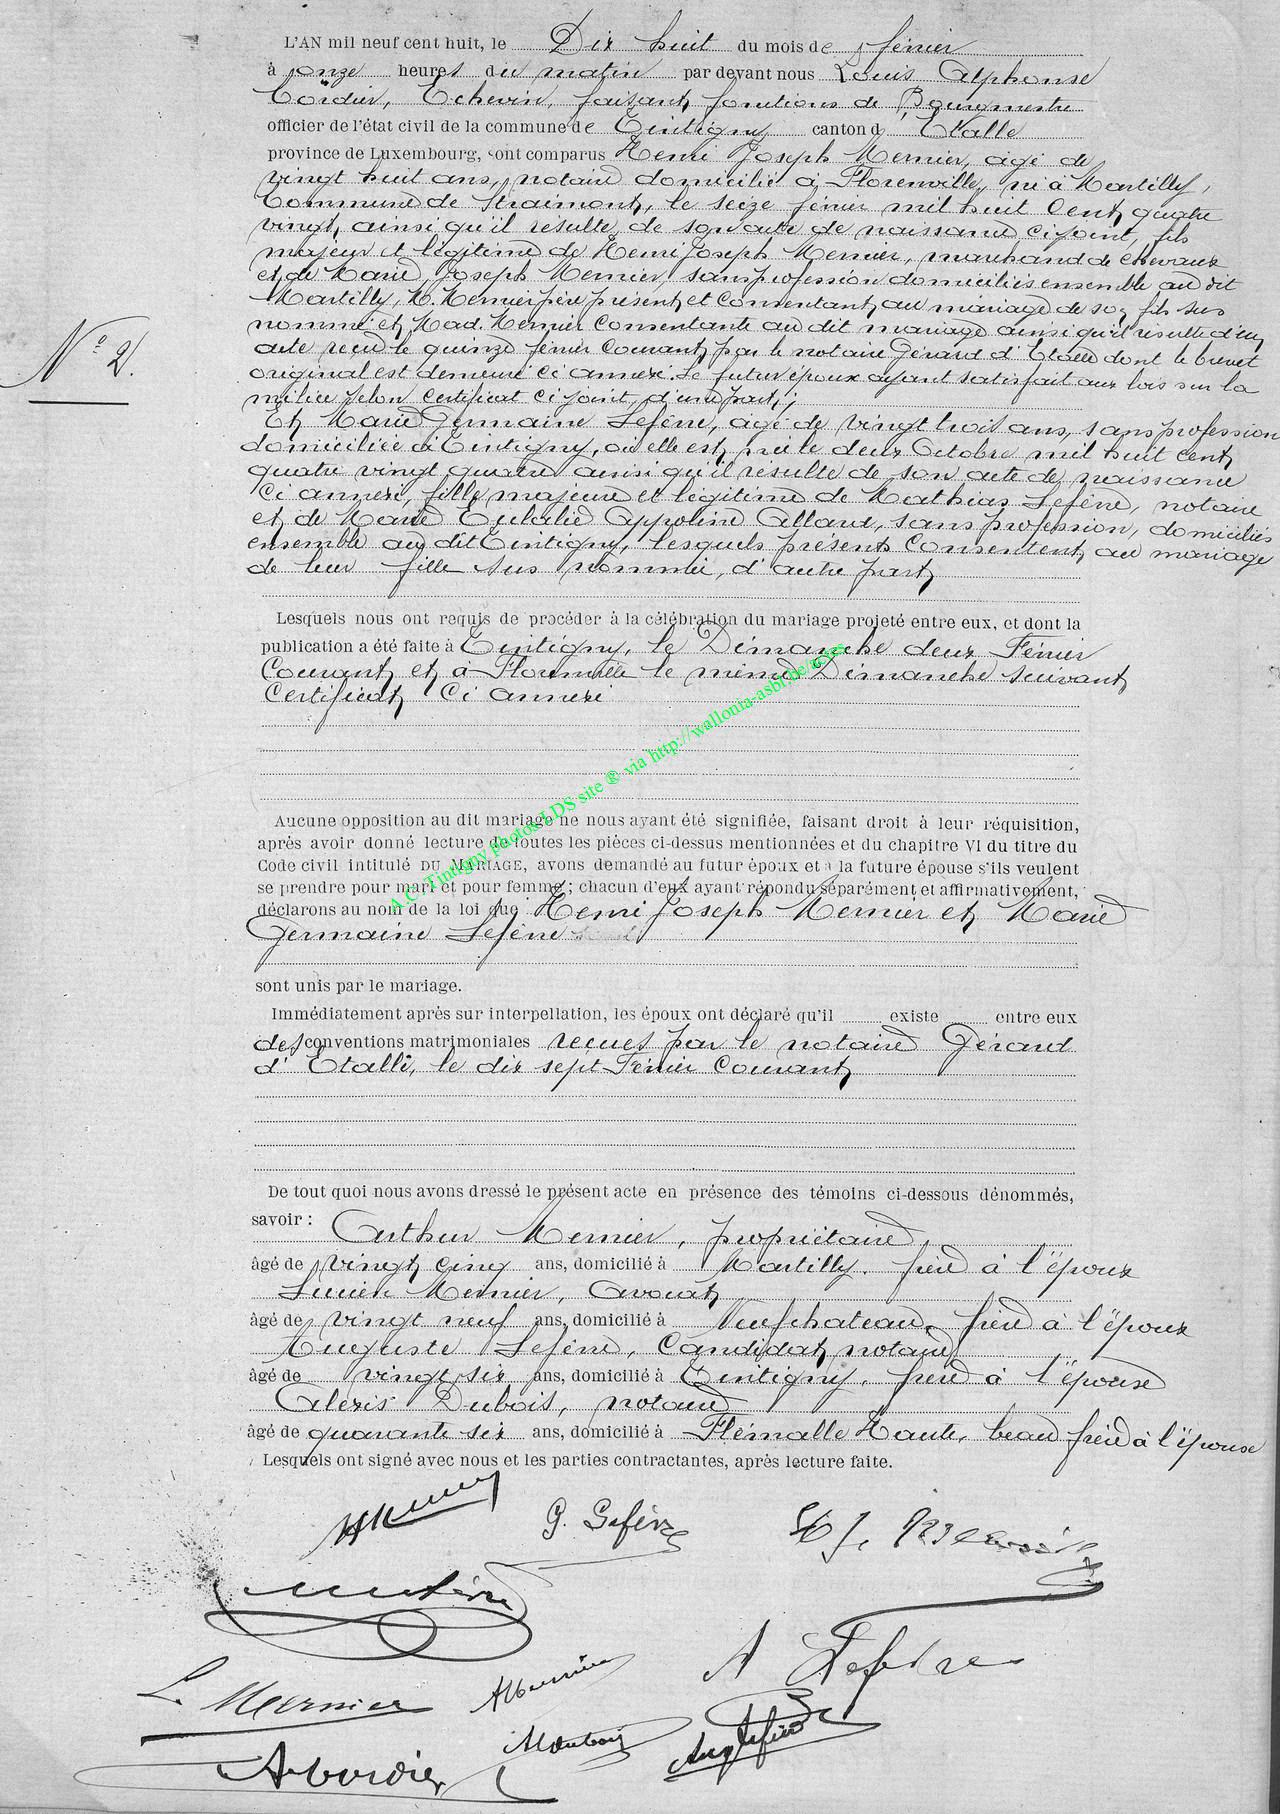 L'AN mil neuf cent huit, le Dix huit du mois de février
à onze heures du matin par devant nous Louis Alphonse
Cordier, Echevin, faisant fonctions de Bourgmestre
officier de l'état civil de la commune de Tintigny canton d'Etalle
province de Luxembourg, sont comparus Henri Joseph Mernier, âgé de
vingt huit ans, notaire domicilié à Florenville, né à Martilly,
Commune de Straimont, le seize février mil huit cent quatre
vingt, ainsi qu'il résulte de son acte de naissance ci joint, fils
majeur et légitime de Henri Joseph Mernier, marchand de chevaux
et de Marie Joseph Mernier, sans profession domiciliés ensemble au dit
Martilly, M. Mernier père présent et consentant au mariage de son fils sus
nommé et Mad. Mernier consentante au dit mariage ainsi qu'il résulte d'un
acte reçu le quinze février courant par le notaire Gérard d'Etalle dont le brevet
original est demeuré ci annexé. Le futur époux ayant satisfait aux lois sur la
milice selon certificat ci joint, d'une part;
Et Marie Germaine Lefèvre, âgée de vingt trois ans, sans profession
domiciliée à Tintigny, où elle est née le deux Octobre mil huit cent
quatre vingt quatre ainsi qu'il résulte de son acte de naissance
ci annexé, fille majeure et légitime de Mathias Lefèvre, notaire
et de Marie Eulalie Appoline Allard, sans profession, domiciliés
ensemble au dit Tintigny, lesquels présents consentent au mariage
de leur fille sus nommée, d'autre part
N° 2.
Lesquels nous ont requis de procéder à la célébration du mariage projeté entre eux, et dont la
publication a été faite à Tintigny, le Dimanche deux Février
Courant et à Florenville le même Dimanche suivant
Certificat Ci annexé
Aucune opposition au dit mariage ne nous ayant été signifiée, faisant droit à leur réquisition,
après avoir donné lecture de toutes les pièces ci-dessus mentionnées et du chapitre VI du titre du
Code civil intitulé DU MARIAGE, avons demandé au futur époux et à la future épouse s'ils veulent
se prendre pour mari et pour femme ; chacun d'eux ayant répondu séparément et affirmativement,
déclarons au nom de la loi que Henri Joseph Mernier et Marie
Germaine Lefèvre
sont unis par le mariage.
Immédiatement après sur interpellation, les époux ont déclaré qu'il existe entre eux
des conventions matrimoniales reçues par le notaire Gérard
d'Etalle, le dix sept Février Courant
De tout quoi nous avons dressé le présent acte en présence des témoins ci-dessous dénommés,
savoir : Arthur Mernier, propriétaire
âgé de vingt cinq ans, domicilié à Martilly, frère à l'époux
Lucien Mernier, Avocat
âgé de vingt neuf ans, domicilié à Neufchateau, frère à l'époux
Auguste Lefèvre, Candidat notaire
âgé de vingt six ans, domicilié à Tintigny, frère à l'épouse
Alexis Dubois, notaire
âgé de quarante six ans, domicilié à Flémalle Haute, beau frère à l'épouse
Lesquels ont signé avec nous et les parties contractantes, après lecture faite.
G. Lefèvre
A Lefèvre
L. Mernier
AMernier
Alxdubois
Aug Lefèvre
A Cordier
A.C. Tintigny photos LDS site ® via http://wallonia-asbl.be/actes